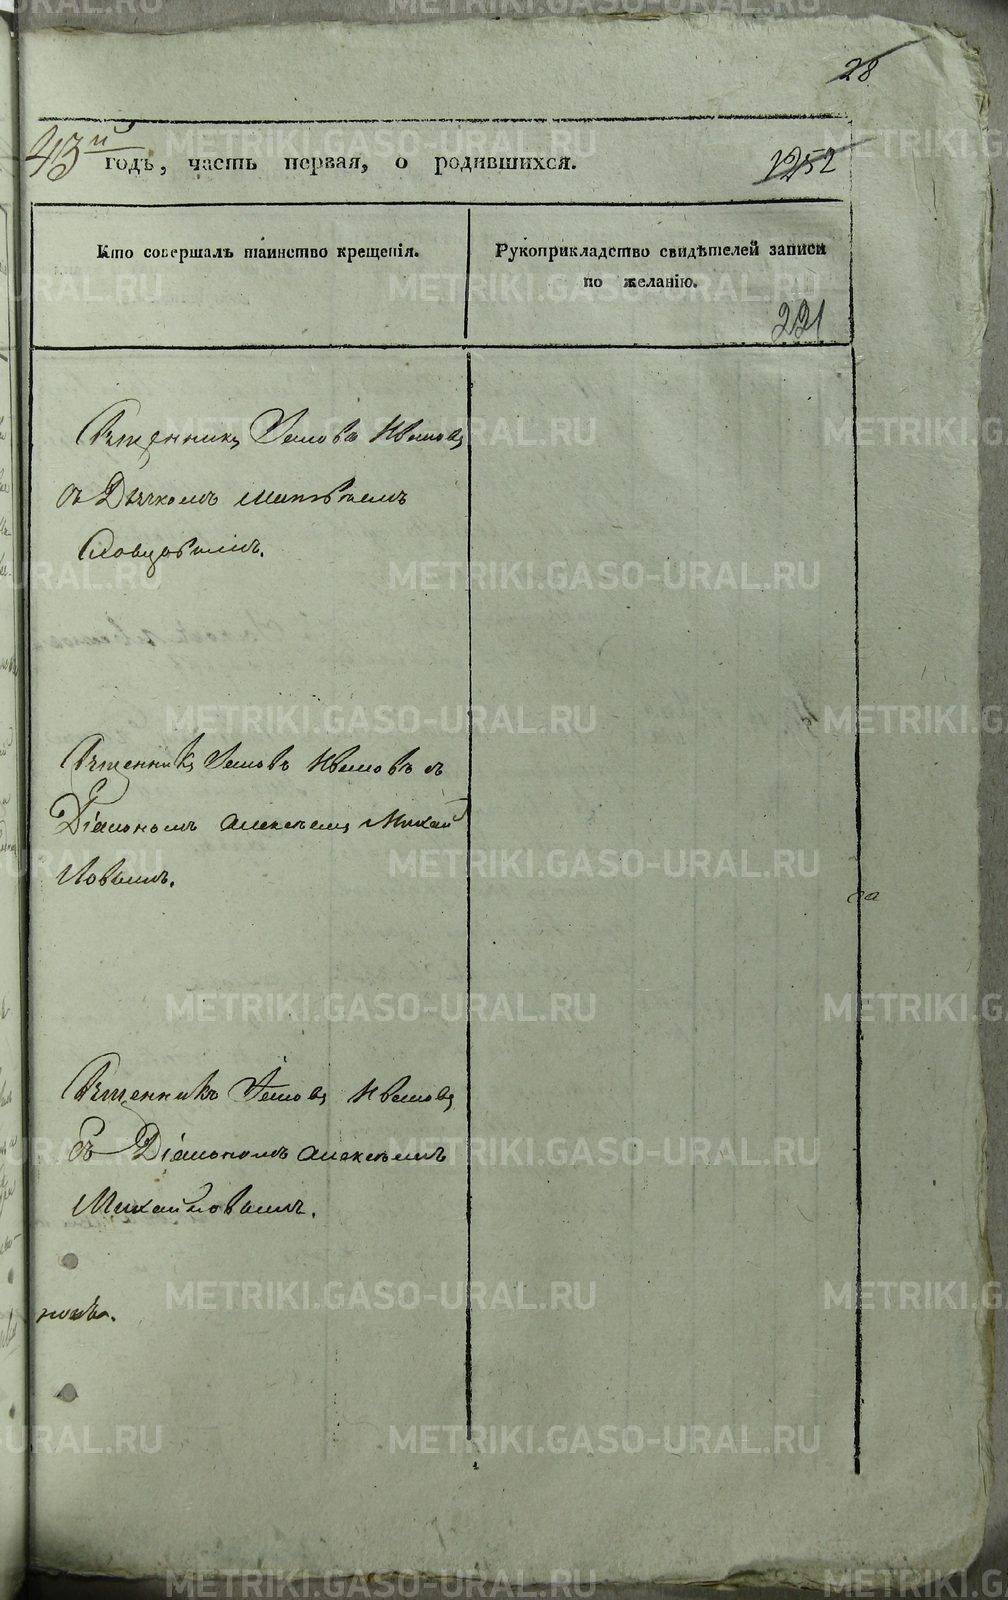 28
43й годъ, часть первая, о родившихся.
1252
Кто совершалъ таинство крещенія.
Рукоприкладство свидѣтелей записи
по желанію.
221
Священникъ Іаковъ Ивановъ
съ Дьячкомъ Матвѣемъ
Словцовымъ.
Священникъ Іаковъ Ивановъ съ
Діакономъ Алексѣемъ Михай
ловымъ.
Священникъ Іаковъ Ивановъ
съ Діакономъ Алексѣемъ
Михайловымъ.
METRIKI.GASO-URAL.RU